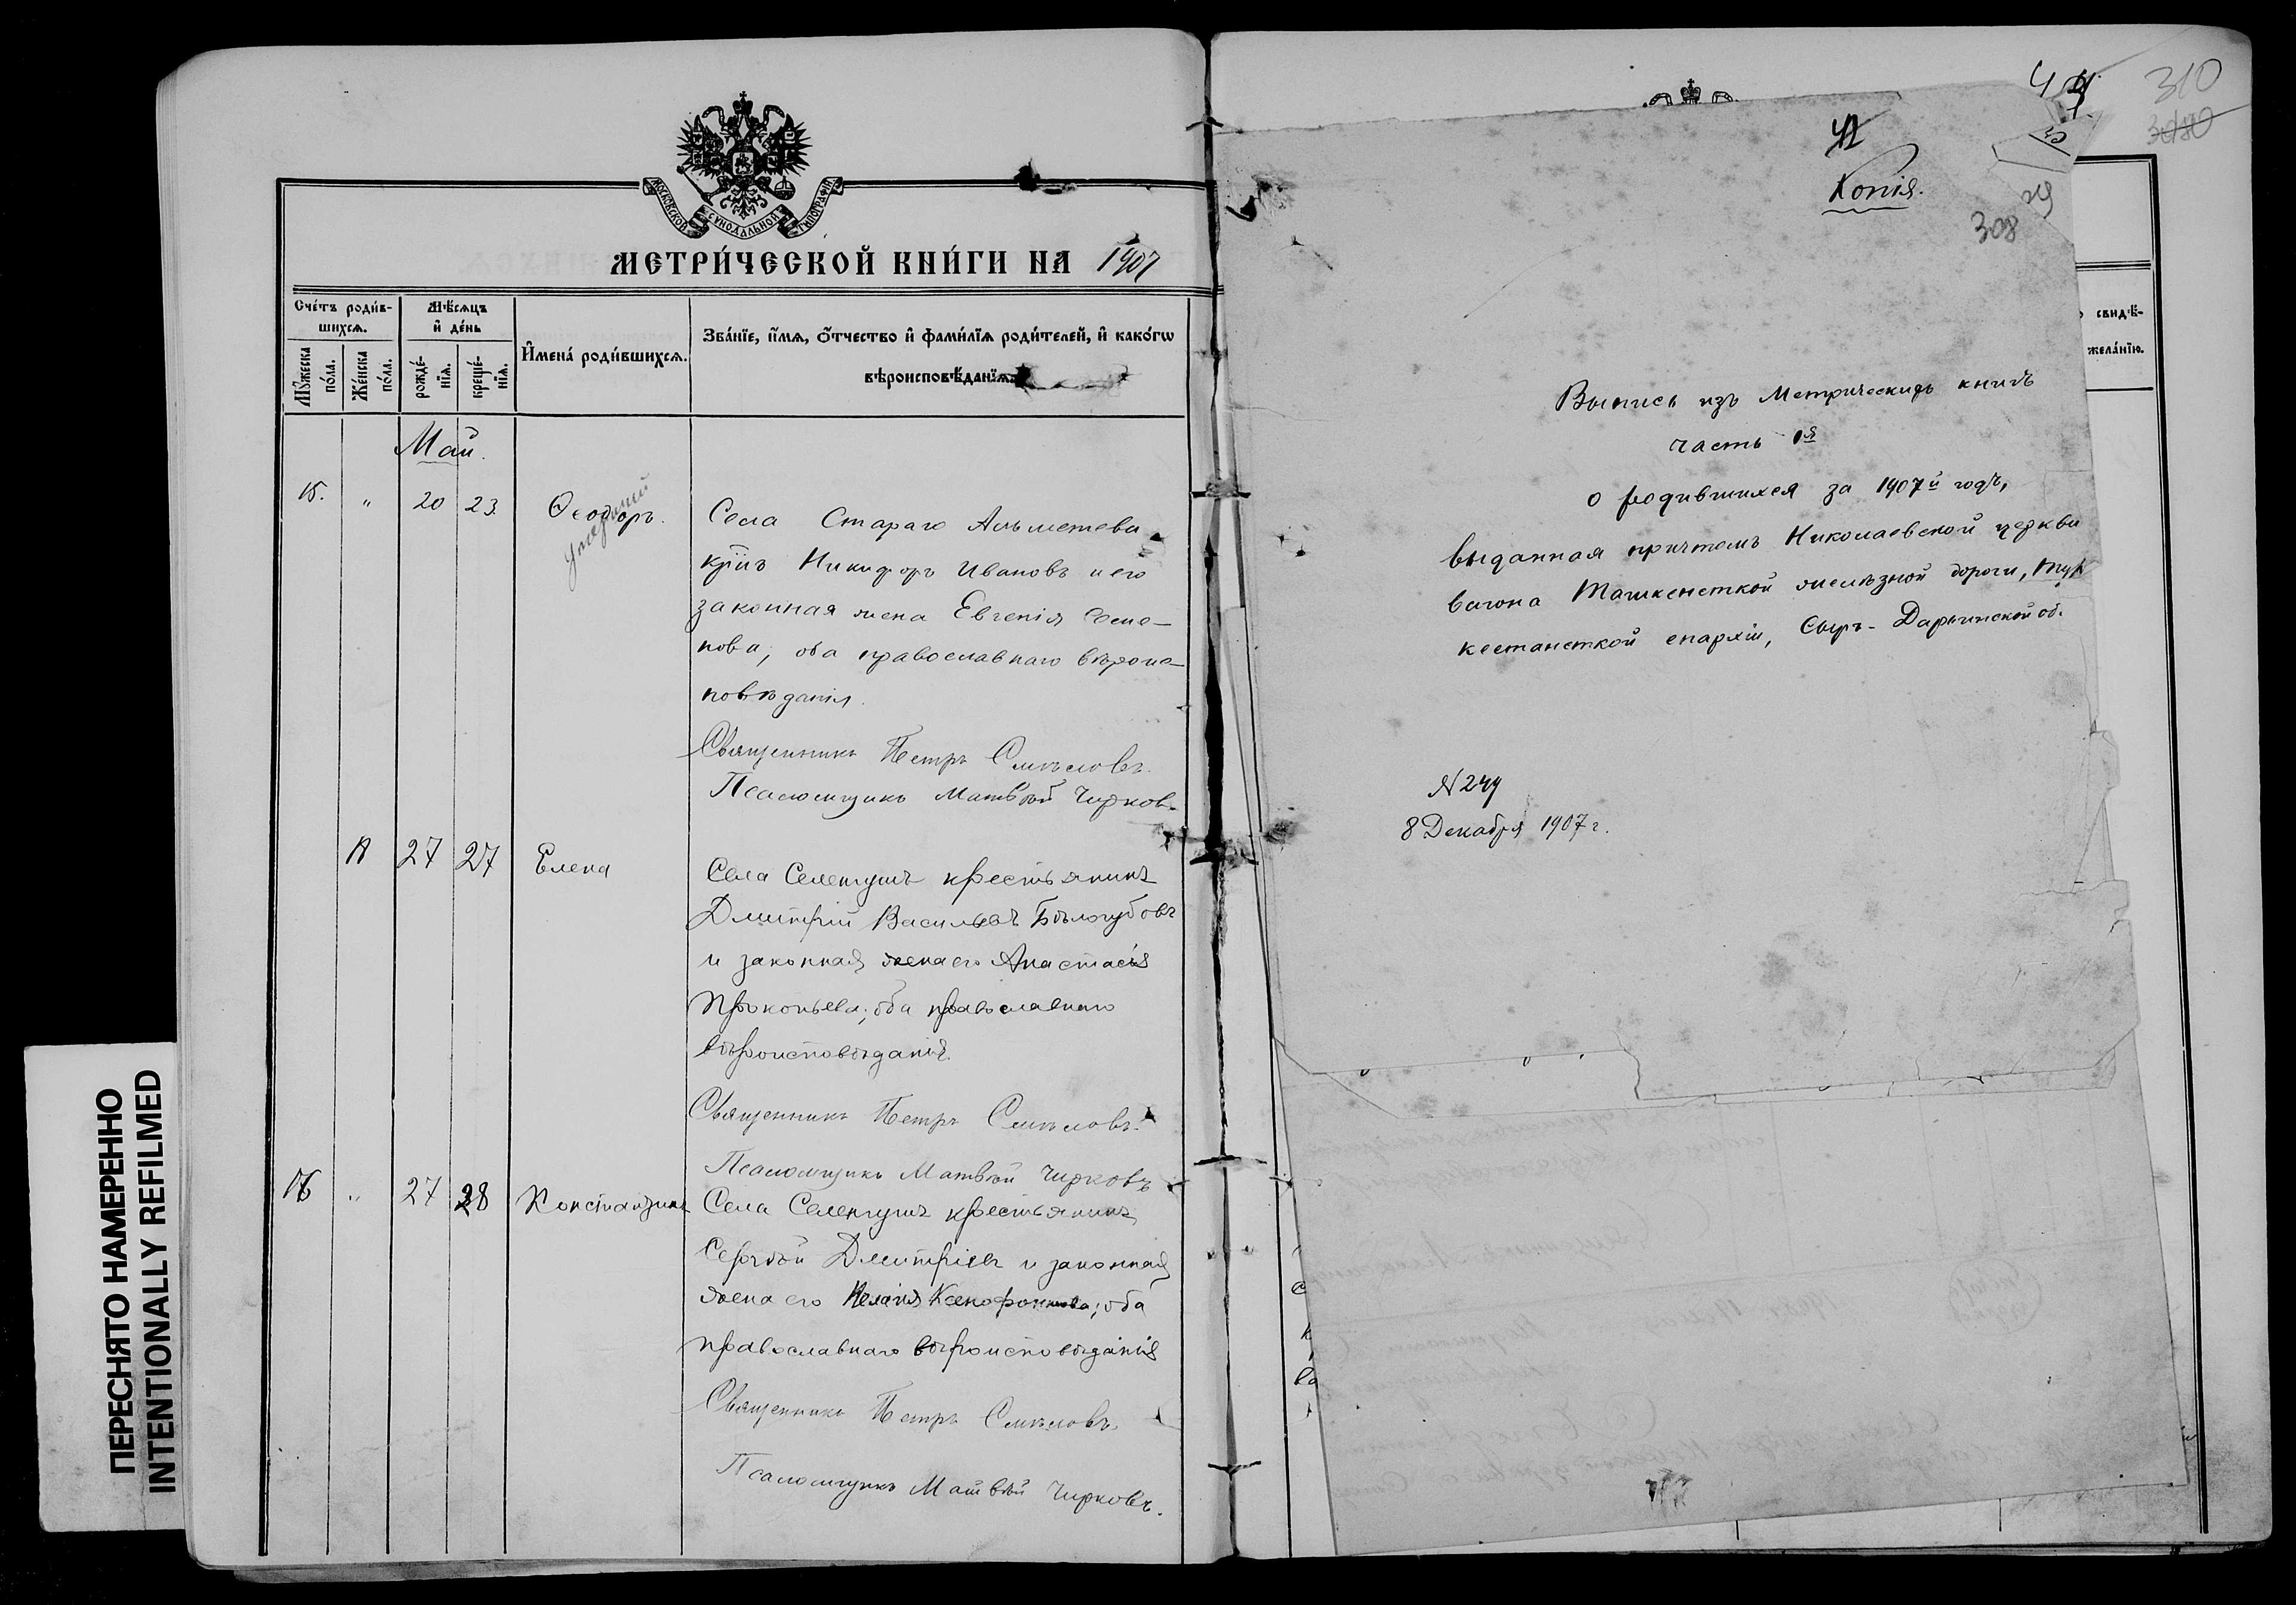 МОСКОВСКОЙ СѴНОДАЛЬНОЙ ТИПОГРАФІИ
МЕТРИ́ЧЕСКОЙ КНИ́ГИ НА 1907
Сче́тъ роди́в-
шихсѧ.
Мꙋ́жеска по́ла.
Же́нска по́ла.
Мѣ́сѧцъ
и҆ де́нь
рожде́-
нїѧ.
креще́-
нїѧ.
И҆мена̀ роди́вшихсѧ.
Зва́нїе, и҆́мѧ, ѻ҆́тчество и҆ фами́лїѧ роди́телей, и҆ како́гѡ
вѣроисповѣ́данїѧ.
Май.
15. " 20 23 Ѳеодоръ.
умерший
Села Стараго Альметева
кр͠нъ Никифоръ Ивановъ и его
законная жена Евгенія Семе-
нова, оба православнаго вѣроис-
повѣданія.
Священникъ Петръ Смѣловъ.
Псаломщикъ Матвѣй Чирков.
27 27 Елена
Села Селенгушъ крестьянинъ
Дмитрій Васильевъ Бѣлогубовъ
и законная жена его Анастасія
Прокопьева; оба православнаго
вѣроисповѣданія.
Священникъ Петръ Смѣловъ.
Псаломщикъ Матвѣй Чирковъ
16 " 27 28 Константинъ
Села Селенгушъ крестьянинъ
Сергѣй Дмитріевъ и законная
жена его Пелагія Ксенофонтова; оба
православнаго вѣроисповѣданія
Священникъ Петръ Смѣловъ.
Псаломщикъ Матвѣй Чирковъ.
310
Копія.
308
свидѣ́-
жела́нїю.
Выпись изъ Метрическихъ книгъ
часть 1я
о родившихся за 1907й годъ,
выданная причтомъ Николаевской церкви
вагона Ташкентской желѣзной дороги, Тур
кестанской епархіи, Сыръ-Дарьинской об.
N 244
8 Декабря 1907 г.
ПЕРЕСНЯТО НАМЕРЕННО
INTENTIONALLY REFILMED